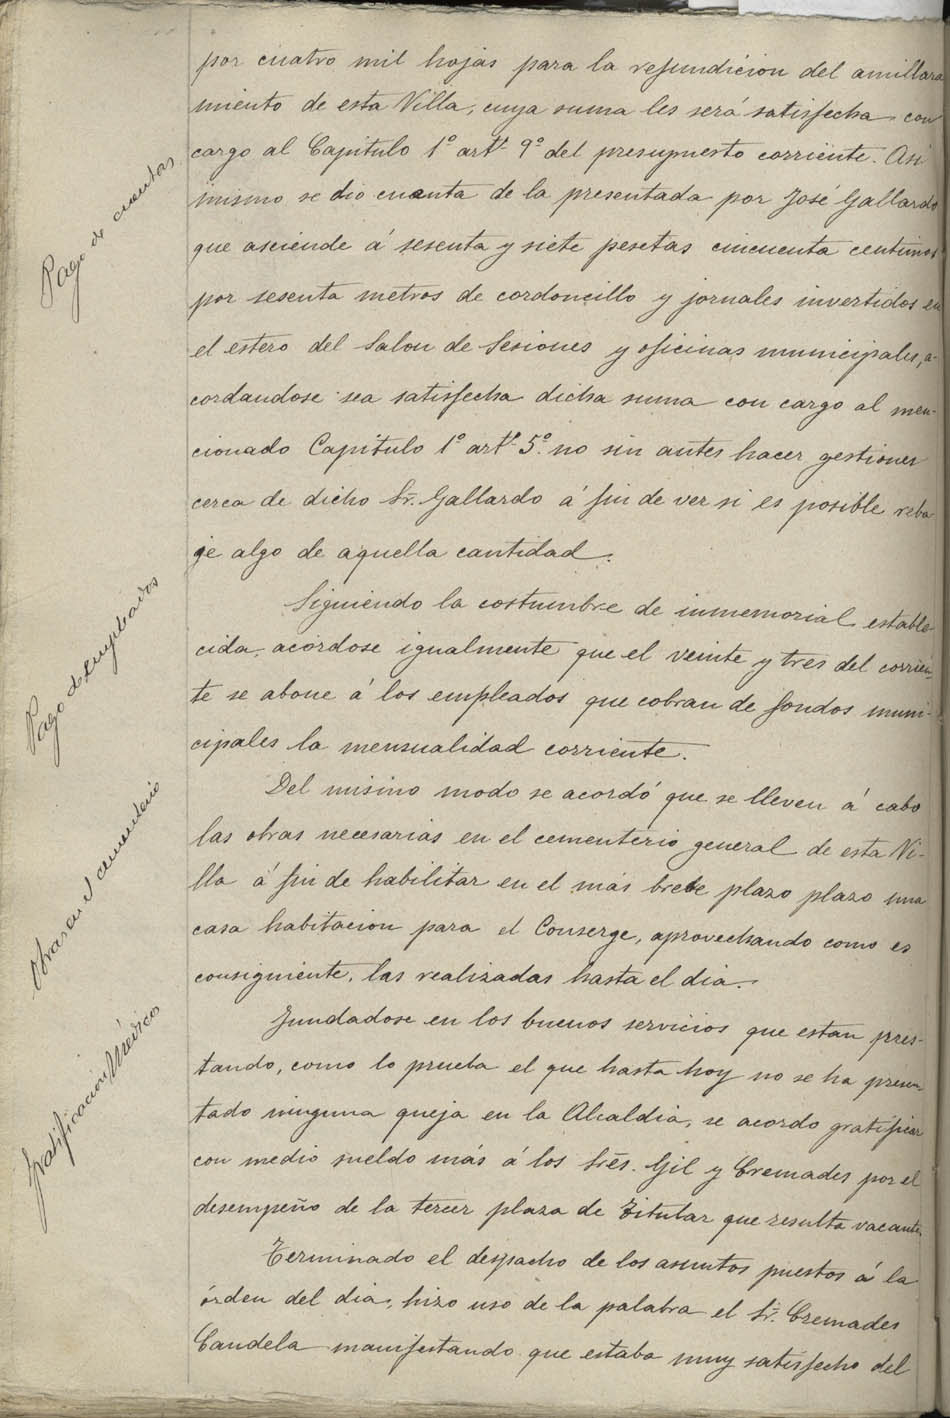 por cuatro mil hojas para la refundicion del amillara
miento de esta Villa, cuya suma les será satisfecha con
cargo al Capítulo 1º artº 9º del presupuesto corriente. Asi
mismo se dió cuenta de la presentada por José Gallardo
que asciende á sesenta y siete pesetas cincuenta centimos
por sesenta metros de cordoncillo y jornales invertidos en
el estero del Salon de Sesiones y oficinas municipales, a-
cordandose sea satisfecha dicha suma con cargo al men-
cionado Capítulo 1º artº 5º. no sin antes hacer gestiones
cerca de dicho Sr. Gallardo á fin de ver si es posible reba
je algo de aquella cantidad.
Pago de cuentas
Siguiendo la costumbre de inmemorial estable
cida, acordose igualmente que el veinte y tres del corrien
te se abone á los empleados que cobran de fondos muni-
cipales la mensualidad corriente.
Pago de empleados
Del mismo modo se acordó que se lleven á cabo
las obras necesarias en el cementerio general de esta Vi-
lla á fin de habilitar en el más breve plazo plazo una
casa habitacion para el Conserge, aprovechando como es
consiguiente, las realizadas hasta el dia.
Obras en el cementerio
Fundadose en los buenos servicios que estan pres-
tando, como lo prueba el que hasta hoy no se ha presen
tado ninguna queja en la Alcaldia, se acordo gratificar
con medio sueldo más á los Srēs. Gil y Cremades por el
desempeño de la tercer plaza de Titular que resulta vacante.
Gratificación Médicos
Terminado el despacho de los asuntos puestos á la
órden del dia, hizo uso de la palabra el Sr. Cremades
Candela manifestando que estaba muy satisfecho del